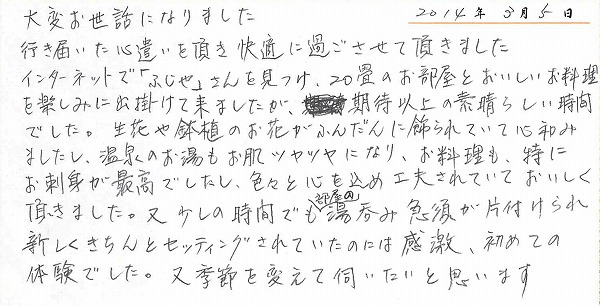 大変お世話になりました
2014年 3月5日
行き届いた心遣いを頂き快適に過ごさせて頂きました
インターネットで「ふじや」さんを見つけ、20畳のお部屋とおいしいお料理
を楽しみに出掛けて来ましたが、期待以上の素晴らしい時間
でした。生花や鉢植のお花がふんだんに飾られていて心和み
ましたし、温泉のお湯もお肌ツヤツヤになり、お料理も、特に
お刺身が最高でしたし、色々と心を込め工夫されていておいしく
頂きました。又少しの時間でも部屋の湯呑み急須が片付けられ
新しくきちんとセッティングされていたのには感激、初めての
体験でした。又季節を変えて伺いたいと思います